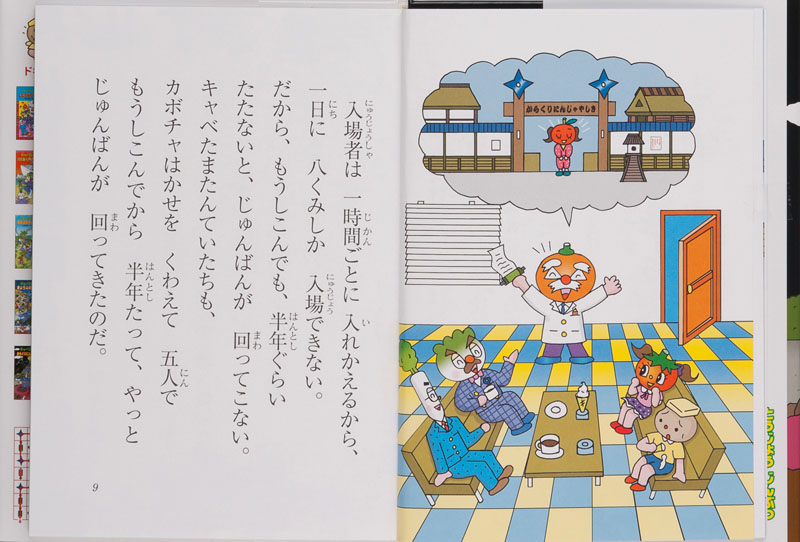 入場者は　一時間ごとに　入れかえるから、
一日に　八くみしか　入場できない。
だから、もうしこんでも、半年ぐらい
たたないと、じゅんばんが　回ってこない。
キャベたまたんていたちも、
カボチャはかせを　くわえて　五人で
もうしこんでから　半年たって、やっと
じゅんばんが　回ってきたのだ。
9
からくりにんじゃやしき